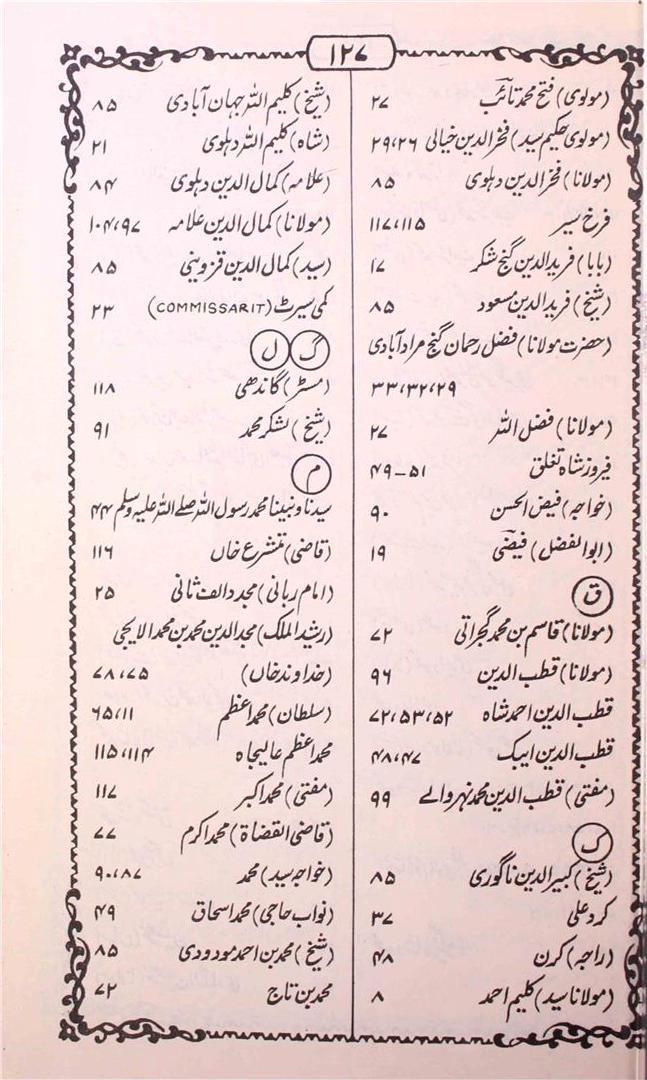 ۱۲۷
(مولوی) فتح محمد تائب ۲۷
(مولوی حکیم سید) فخر الدین خیالی ۲۹،۲۶
(مولانا) فخر الدین دہلوی ۸۵
فرخ سیر ۱۱۷،۱۱۵
(بابا) فرید الدین گنج شکر ۱۷
(شیخ) فرید الدین مسعود ۸۵
(حضرت مولانا) فضل رحمان گنج مرادآبادی
۳۳،۳۲،۲۹
(مولانا) فضل اللہ ۲۷
فیروز شاہ تغلق ۴۹-۵۱
(خواجہ) فیض الحسن ۹۰
(ابوالفضل) فیضی ۱۹
ق
(مولانا) قاسم بن محمد گجراتی ۷۲
(مولانا) قطب الدین ۹۶
قطب الدین احمد شاہ ۷۲،۵۳،۵۲
قطب الدین ایبک ۴۸،۴۷
(مفتی) قطب الدین محمد نہروالے ۹۹
ک
(شیخ) کبیر الدین ناگوری ۸۵
کرد علی ۳۷
(راجہ) کرن ۴۸
(مولانا سید) کلیم احمد ۸
(شیخ) کلیم اللہ جہان آبادی ۸۵
(شاہ) کلیم اللہ دہلوی ۲۱
(علامہ) کمال الدین دہلوی ۸۴
(مولانا) کمال الدین علامہ ۱۰۴،۹۷
(سید) کمال الدین قزوینی ۸۵
کمی سیرٹ (COMMISSARIT) ۲۳
گ ل
(مسٹر) گاندھی ۱۱۸
(شیخ) لشکر محمد ۹۱
م
سیدنا و نبینا محمد رسول اللہ صلے اللہ علیہ وسلم ۴۴
(قاضی) متشرع خاں ۱۱۶
(امام ربانی) مجدد الف ثانی ۲۵
(رشید الملک) مجد الدین محمد بن محمد الایجی
(خداوند خاں) ۷۸،۷۵
(سلطان) محمد اعظم ۶۵،۱۱
محمد اعظم عالیجاہ ۱۱۵،۱۱۴
(مفتی) محمد اکبر ۱۱۷
(قاضی القضاۃ) محمد اکرم ۷۷
(خواجہ سید) محمد ۹۰،۸۷
(نواب حاجی) محمد اسحاق ۴۹
(شیخ) محمد بن احمد مودودی ۸۵
محمد بن تاج ۷۲